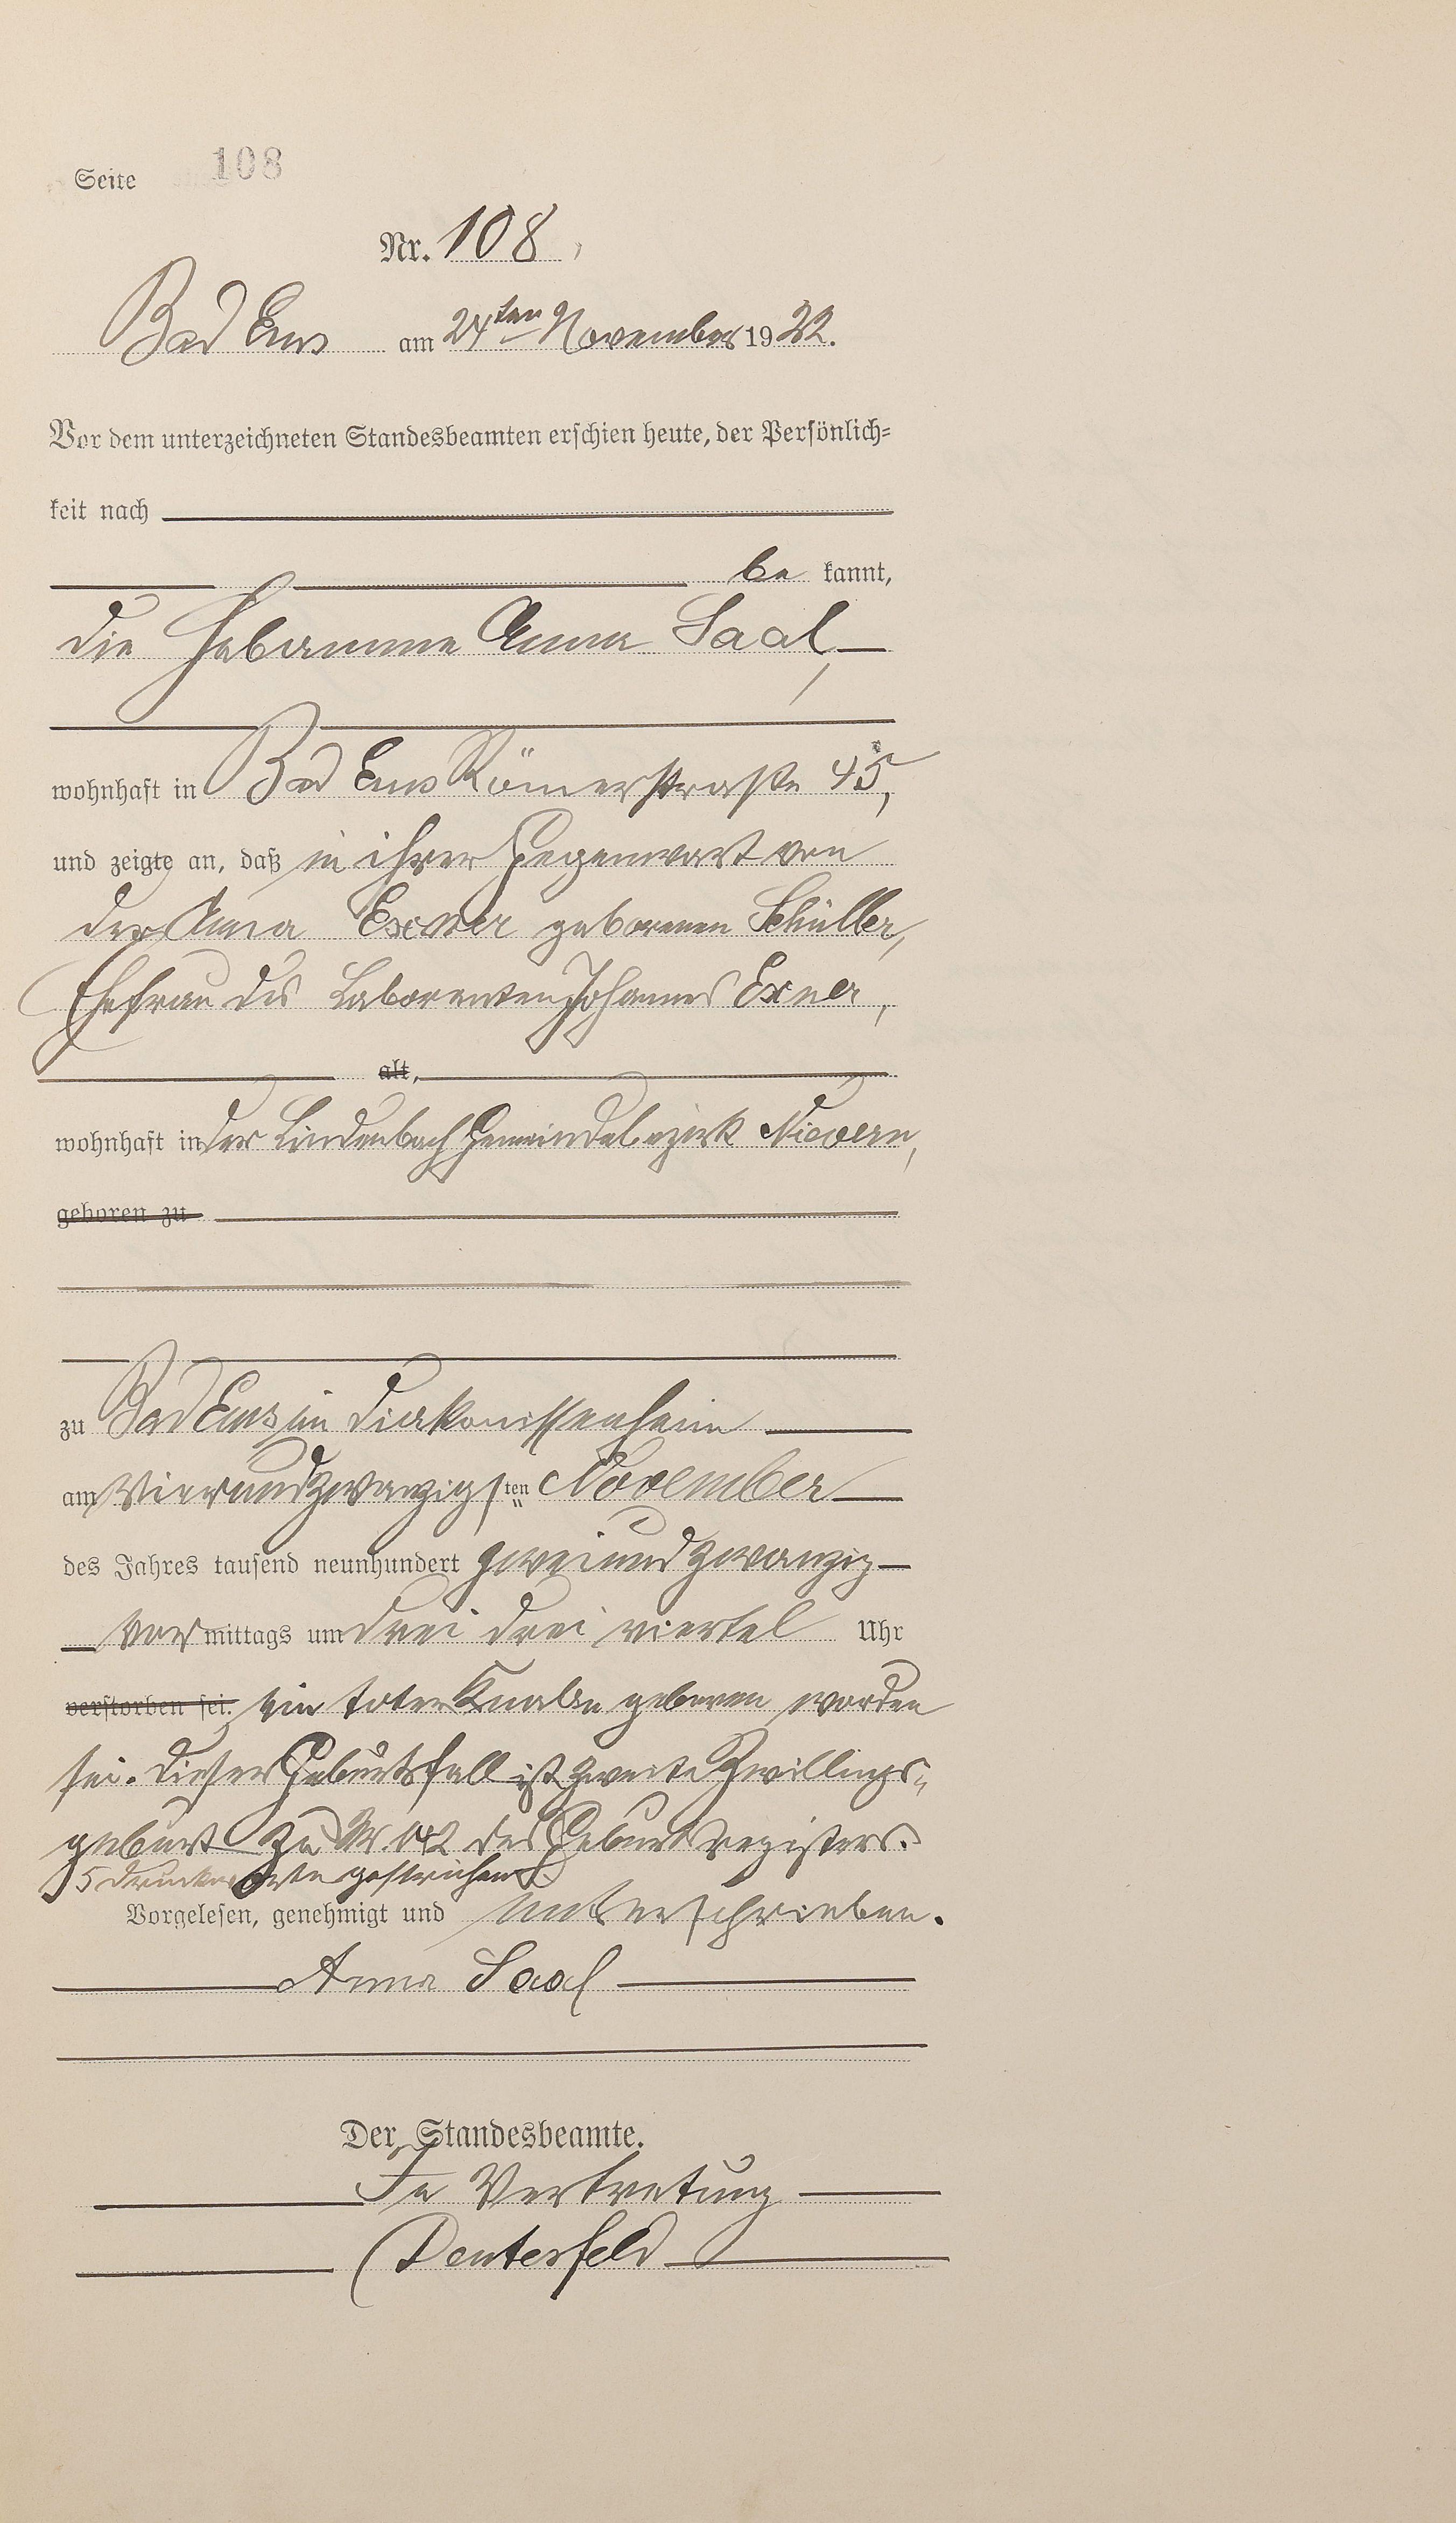 Seite 108
Nr. 108
Bad Ems am 24ten November 1922.
Vor dem unterzeichneten Standesbeamten erschien heute, der Persönlich-
keit nach
be kannt,
die Hebamme Anna Saal,
wohnhaft in Bad Ems Römerstraße 45,
und zeigte an, daß in ihrer Gegenwart von
der Anna Exner geborenen Schüller,
Ehefrau des Laboranten Johannes Exner,
alt,
wohnhaft in der Lindenbach Gemeindebezirk Nievern,
geboren zu
zu Bad Ems im Diakonissenheim
am vierundzwanzigsten November
des Jahres tausend neunhundert zweiundzwanzig
vormittags um drei drei viertel Uhr
verstorben sei. ein toter Knabe geboren worden
sei. Dieser Geburtsfall ist zweite Zwillings-
geburt zu Nr. 142 des Geburtsregisters.
5 Druckworte gestrichen
Vorgelesen, genehmigt und unterschrieben.
Anna Saal
Der Standesbeamte.
In Vertretung